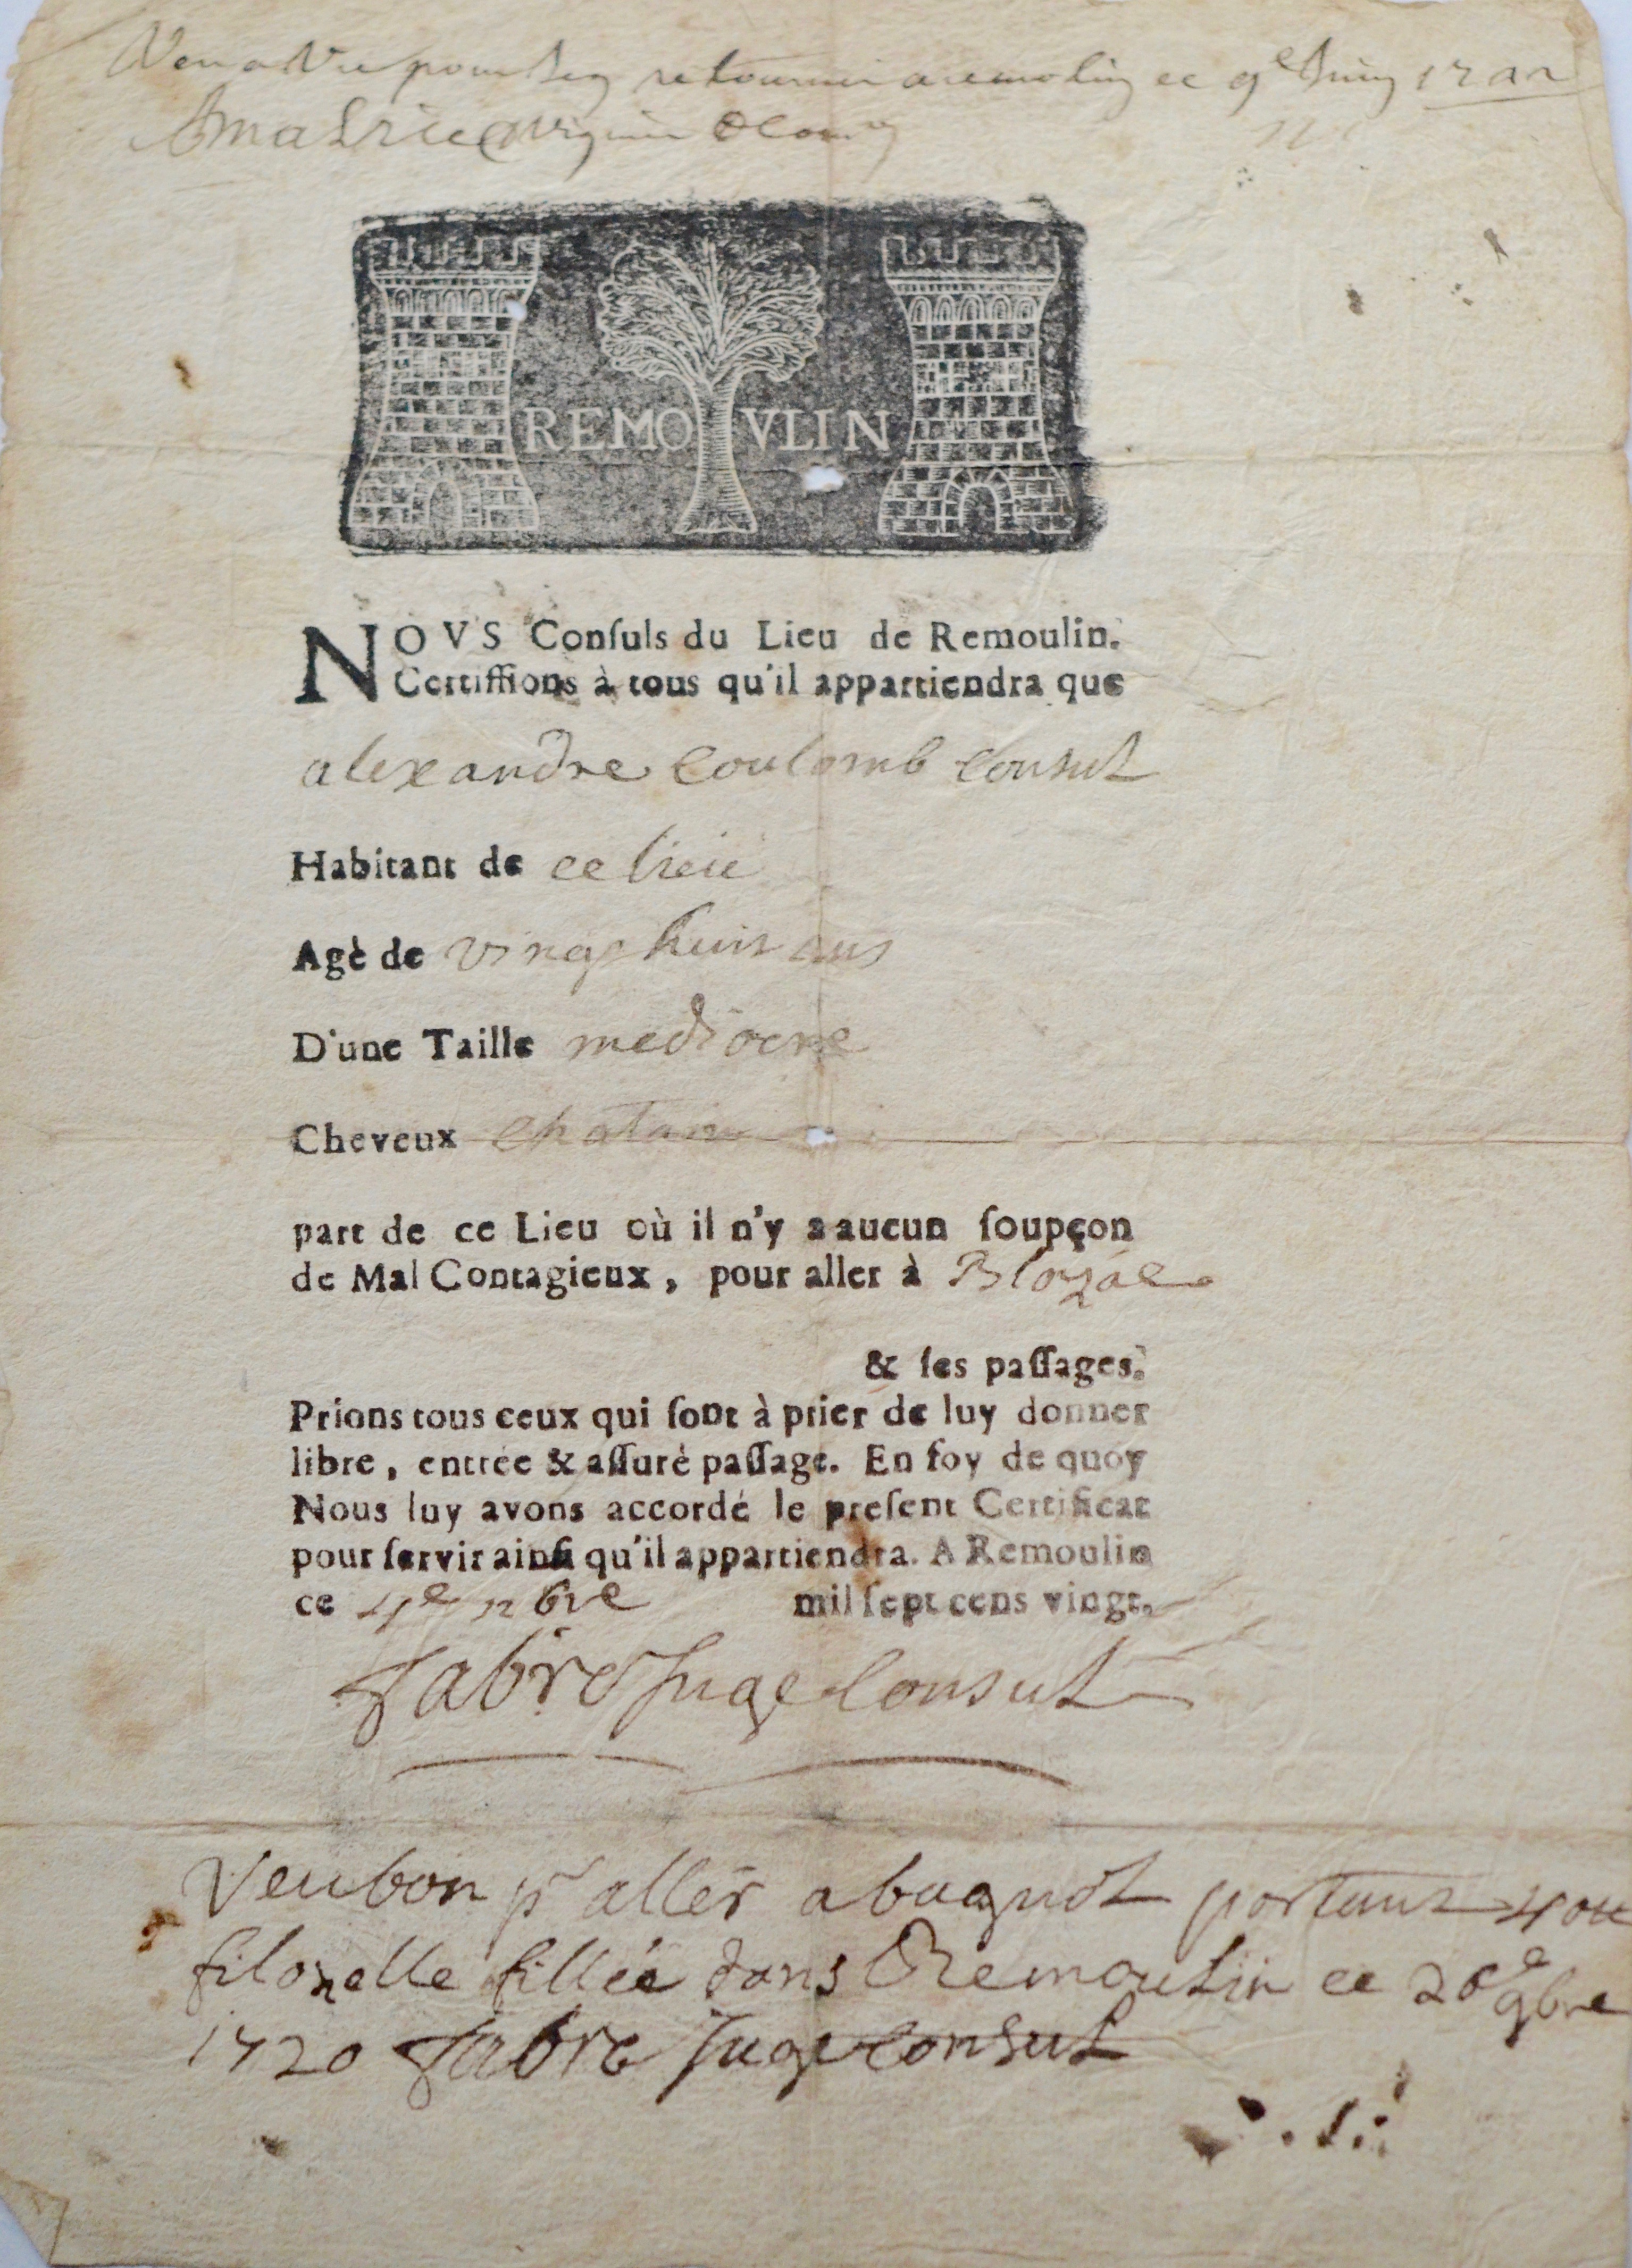 pour sen retourner a remolin ce 9e
REMOVLIN
NOVS Conſuls du Lieu de Remoulin.
Certiffions à tous qu'il appartiendra que
alexandre Coulomb Consul
Habitant de ce lieu
Agè de vingt huit ans
D'une Taille mediocre
Cheveux chatain
part de ce Lieu où il n'y a aucun ſoupçon
de Mal Contagieux, pour aller à Blozac
& ſes paſſages.
Prions tous ceux qui ſont à prier de luy donner
libre, entrée & aſſurè paſſage. En foy de quoy
Nous luy avons accordé le preſent Certificat
pour ſervir ainſi qu'il appartiendra. A Remoulin
ce mil ſept cens vingt.
fabre Juge Consul
Veu bon pr aller a bagnol portant
filozelle fillée dans Remoulin ce 20e 9bre
1720 fabre Juge consul